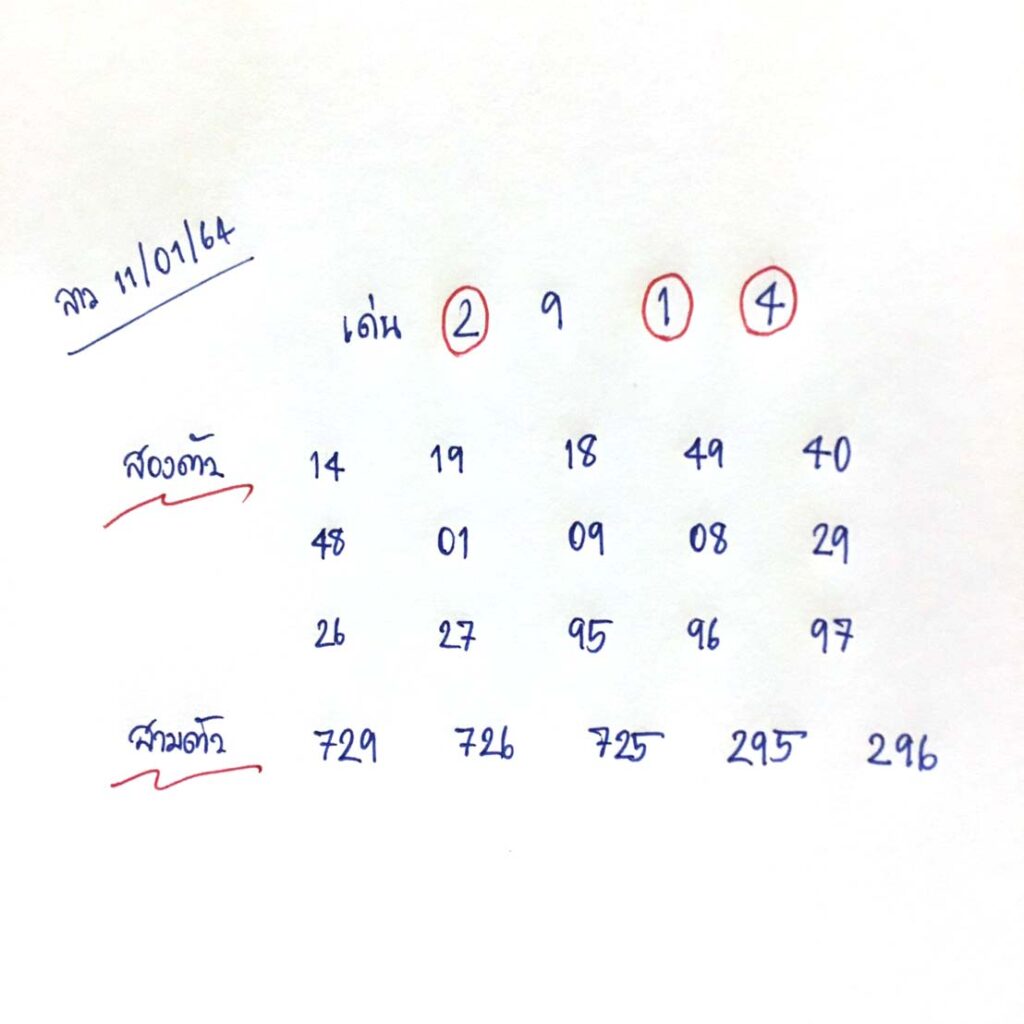 ลาว 11/01/64
เด่น 2 9 1 4
สองตัว 14 19 18 49 40
48 01 09 08 29
26 27 95 96 97
สามตัว 729 726 725 295 296